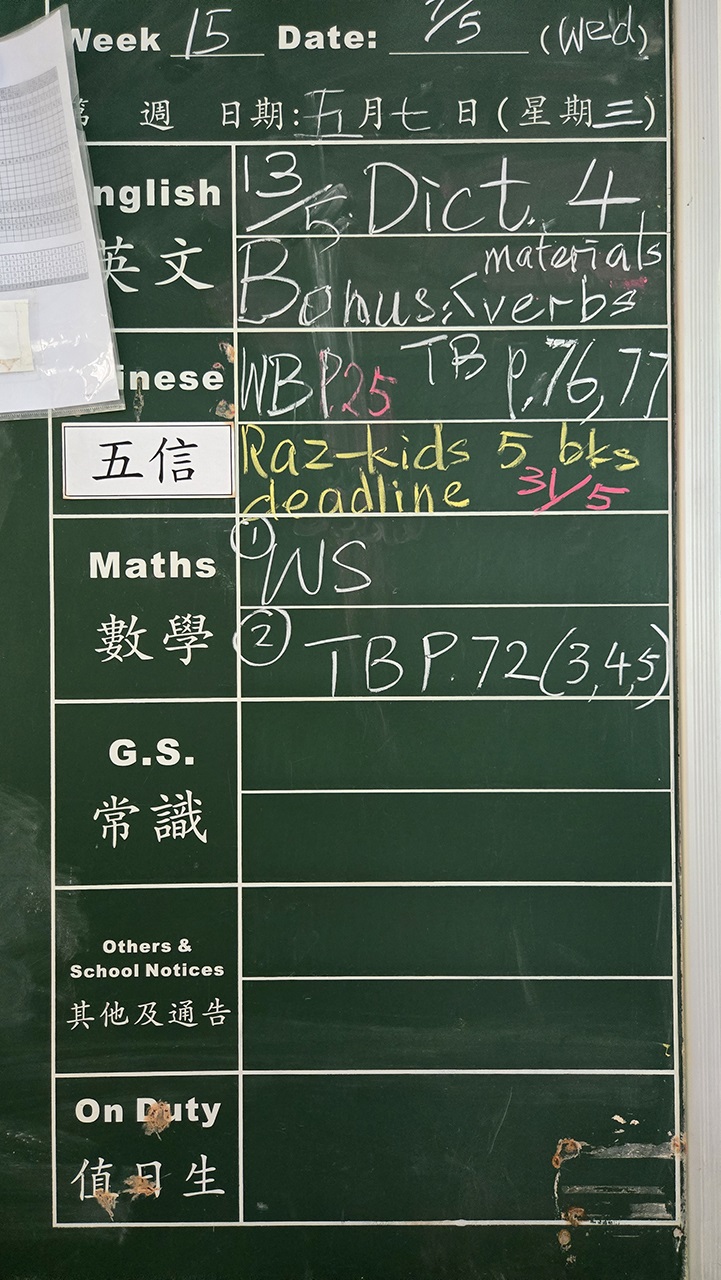 Week 15 Date: 7/5 (Wed)
週 日期: 五月七日(星期三)
English 英文
13/5 Dict. 4
Bonus: < materials
verbs
Chinese
WB P.25 TB P.76,77
五信
Raz-kids 5 bks
deadline 31/5
Maths 數學
① WS
② TB P.72(3,4,5)
G.S.
常識
Others &
School Notices
其他及通告
On Duty
值日生